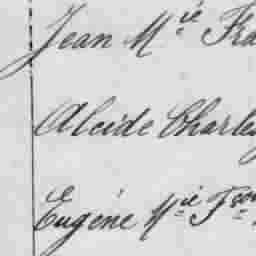 Jean M.ie Fra
Alcide Charles
Eugène M.ie F.çois